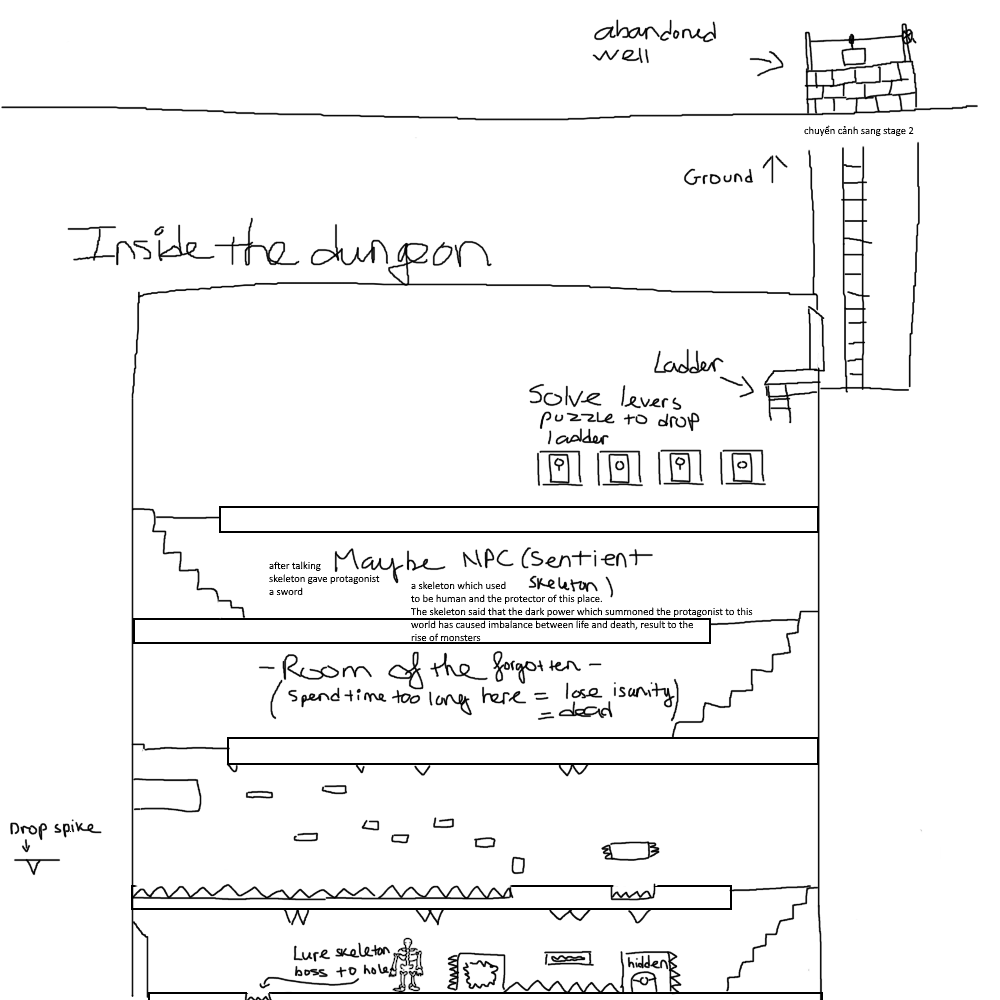 abandoned
well
chuyển cảnh sang stage 2
Ground
Inside the dungeon
Ladder
Solve levers
puzzle to drop
ladder
after talking
skeleton gave protagonist
a sword
Maybe NPC (Sentient
skeleton)
a skeleton which used
to be human and the protector of this place.
The skeleton said that the dark power which summoned the protagonist to this
world has caused imbalance between life and death, result to the
rise of monsters
- Room of the forgotten -
(spend time too long here = lose isanity)
= dead
Drop spike
Lure skeleton
boss to hole
hidden